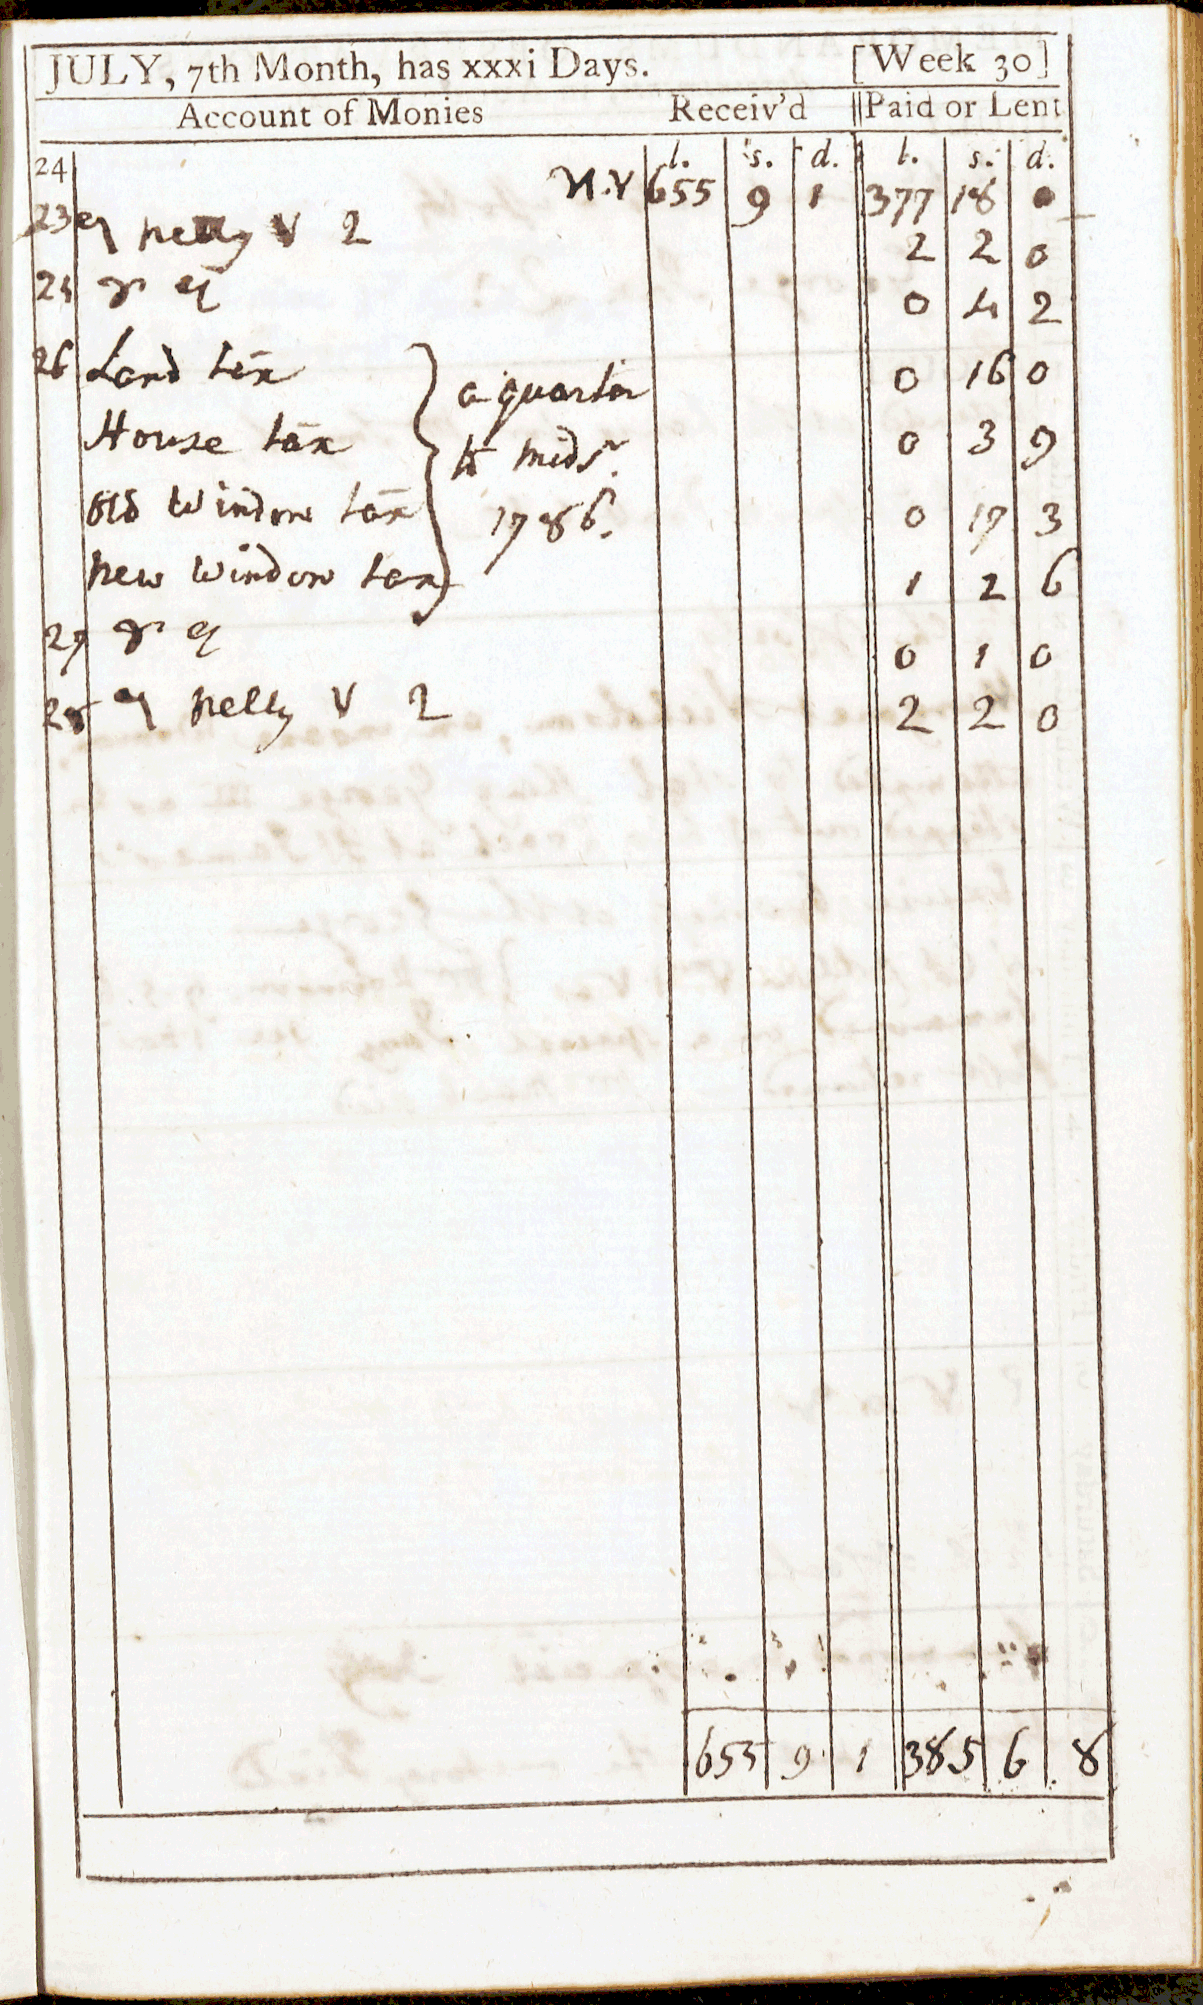 JULY, 7th Month, has xxxi Days. [Week 30]
Account of Monies Receiv'd Paid or Lent
l. s. d. l. s. d.
24 N.V 655 9 1 377 18 0
23 petty V 2 2 2 0
0 4 2
26 Land tax 0 16 0
a quarter
House tax 0 3 9
to mids.r
old window tax 0 17 3
1786.
new window tax 1 2 6
27 0 1 0
28 petty V 2 2 2 0
655 9 1 385 6 8